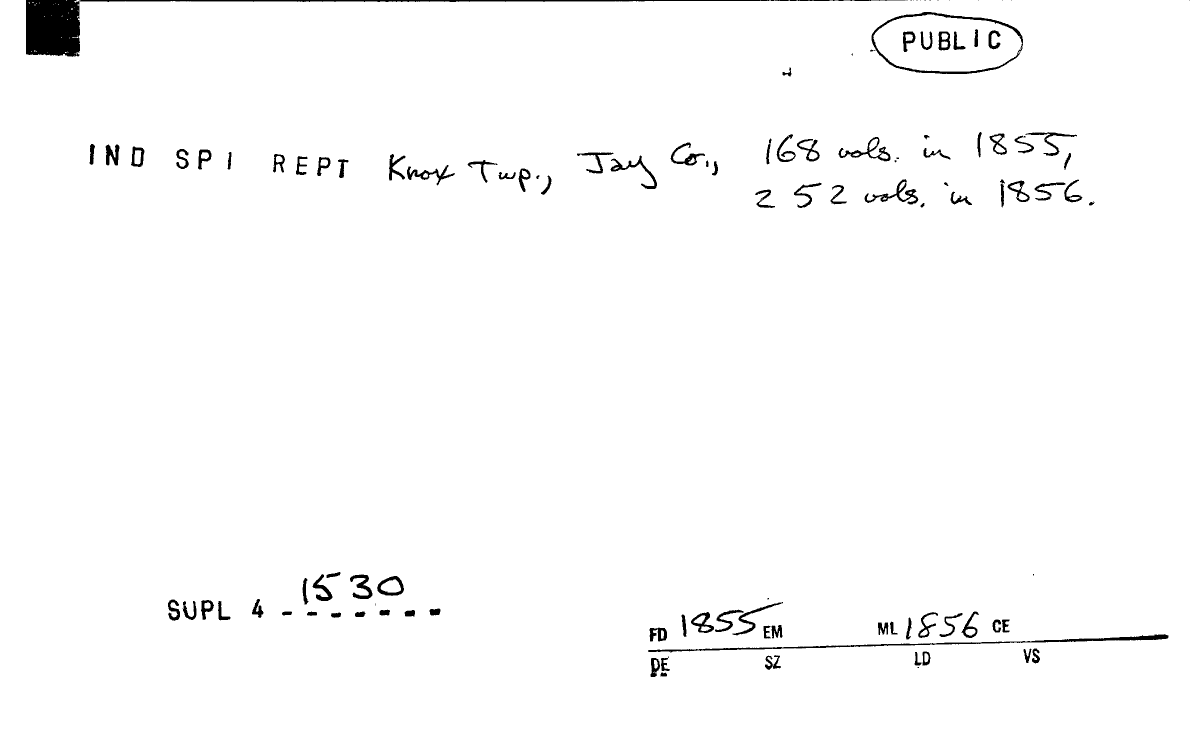 PUBLIC
IND SPI REPT Knox Twp., Jay Co., 168 vols. in 1855,
252 vols. in 1856.
SUPL 4 1530
FD 1855 EM ML 1856 CE
DE SZ LD VS